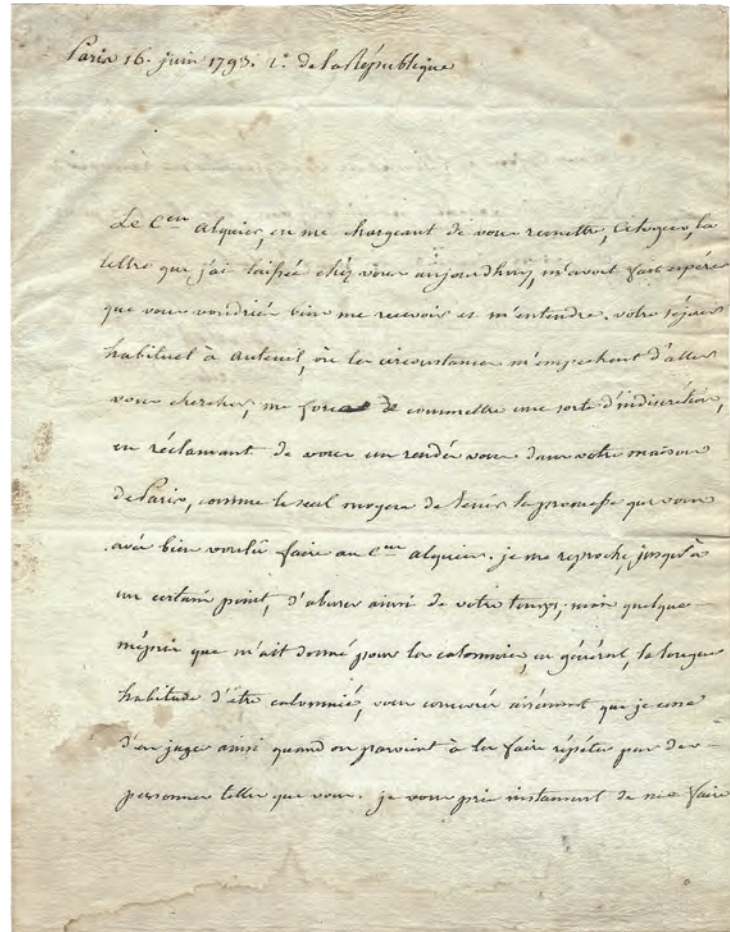 Paris 16. juin 1793. 2e. de la République
Le Cen alquier, en me chargeant de vous remettre, Citoyen, la
lettre que j'ai laissée chéz vous aujourdhuy, m'avoit fait espérer
que vous voudriéz bien me recevoir et m'entendre. votre séjour
habituel à auteuil, où les circonstances m'empechent d'aller
vous chercher, me force de commettre une sorte d'indiscrétion,
en réclamant de vous un rendéz vous dans votre maison
de Paris, comme le seul moyen de tenir la promesse que vous
avéz bien voulû faire au Cen alquier. je me reproche, jusqu'à
un certain point, d'abuser ainsi de votre temps; mais quelque
mépris que m'ait donné pour les calomnies, en général, la longue
habitude d'être calomnié, vous concevréz aisément que je cesse
d'en juger ainsi quand on parvient à les faire répéter par des
personnes telles que vous. je vous prie instament de me faire